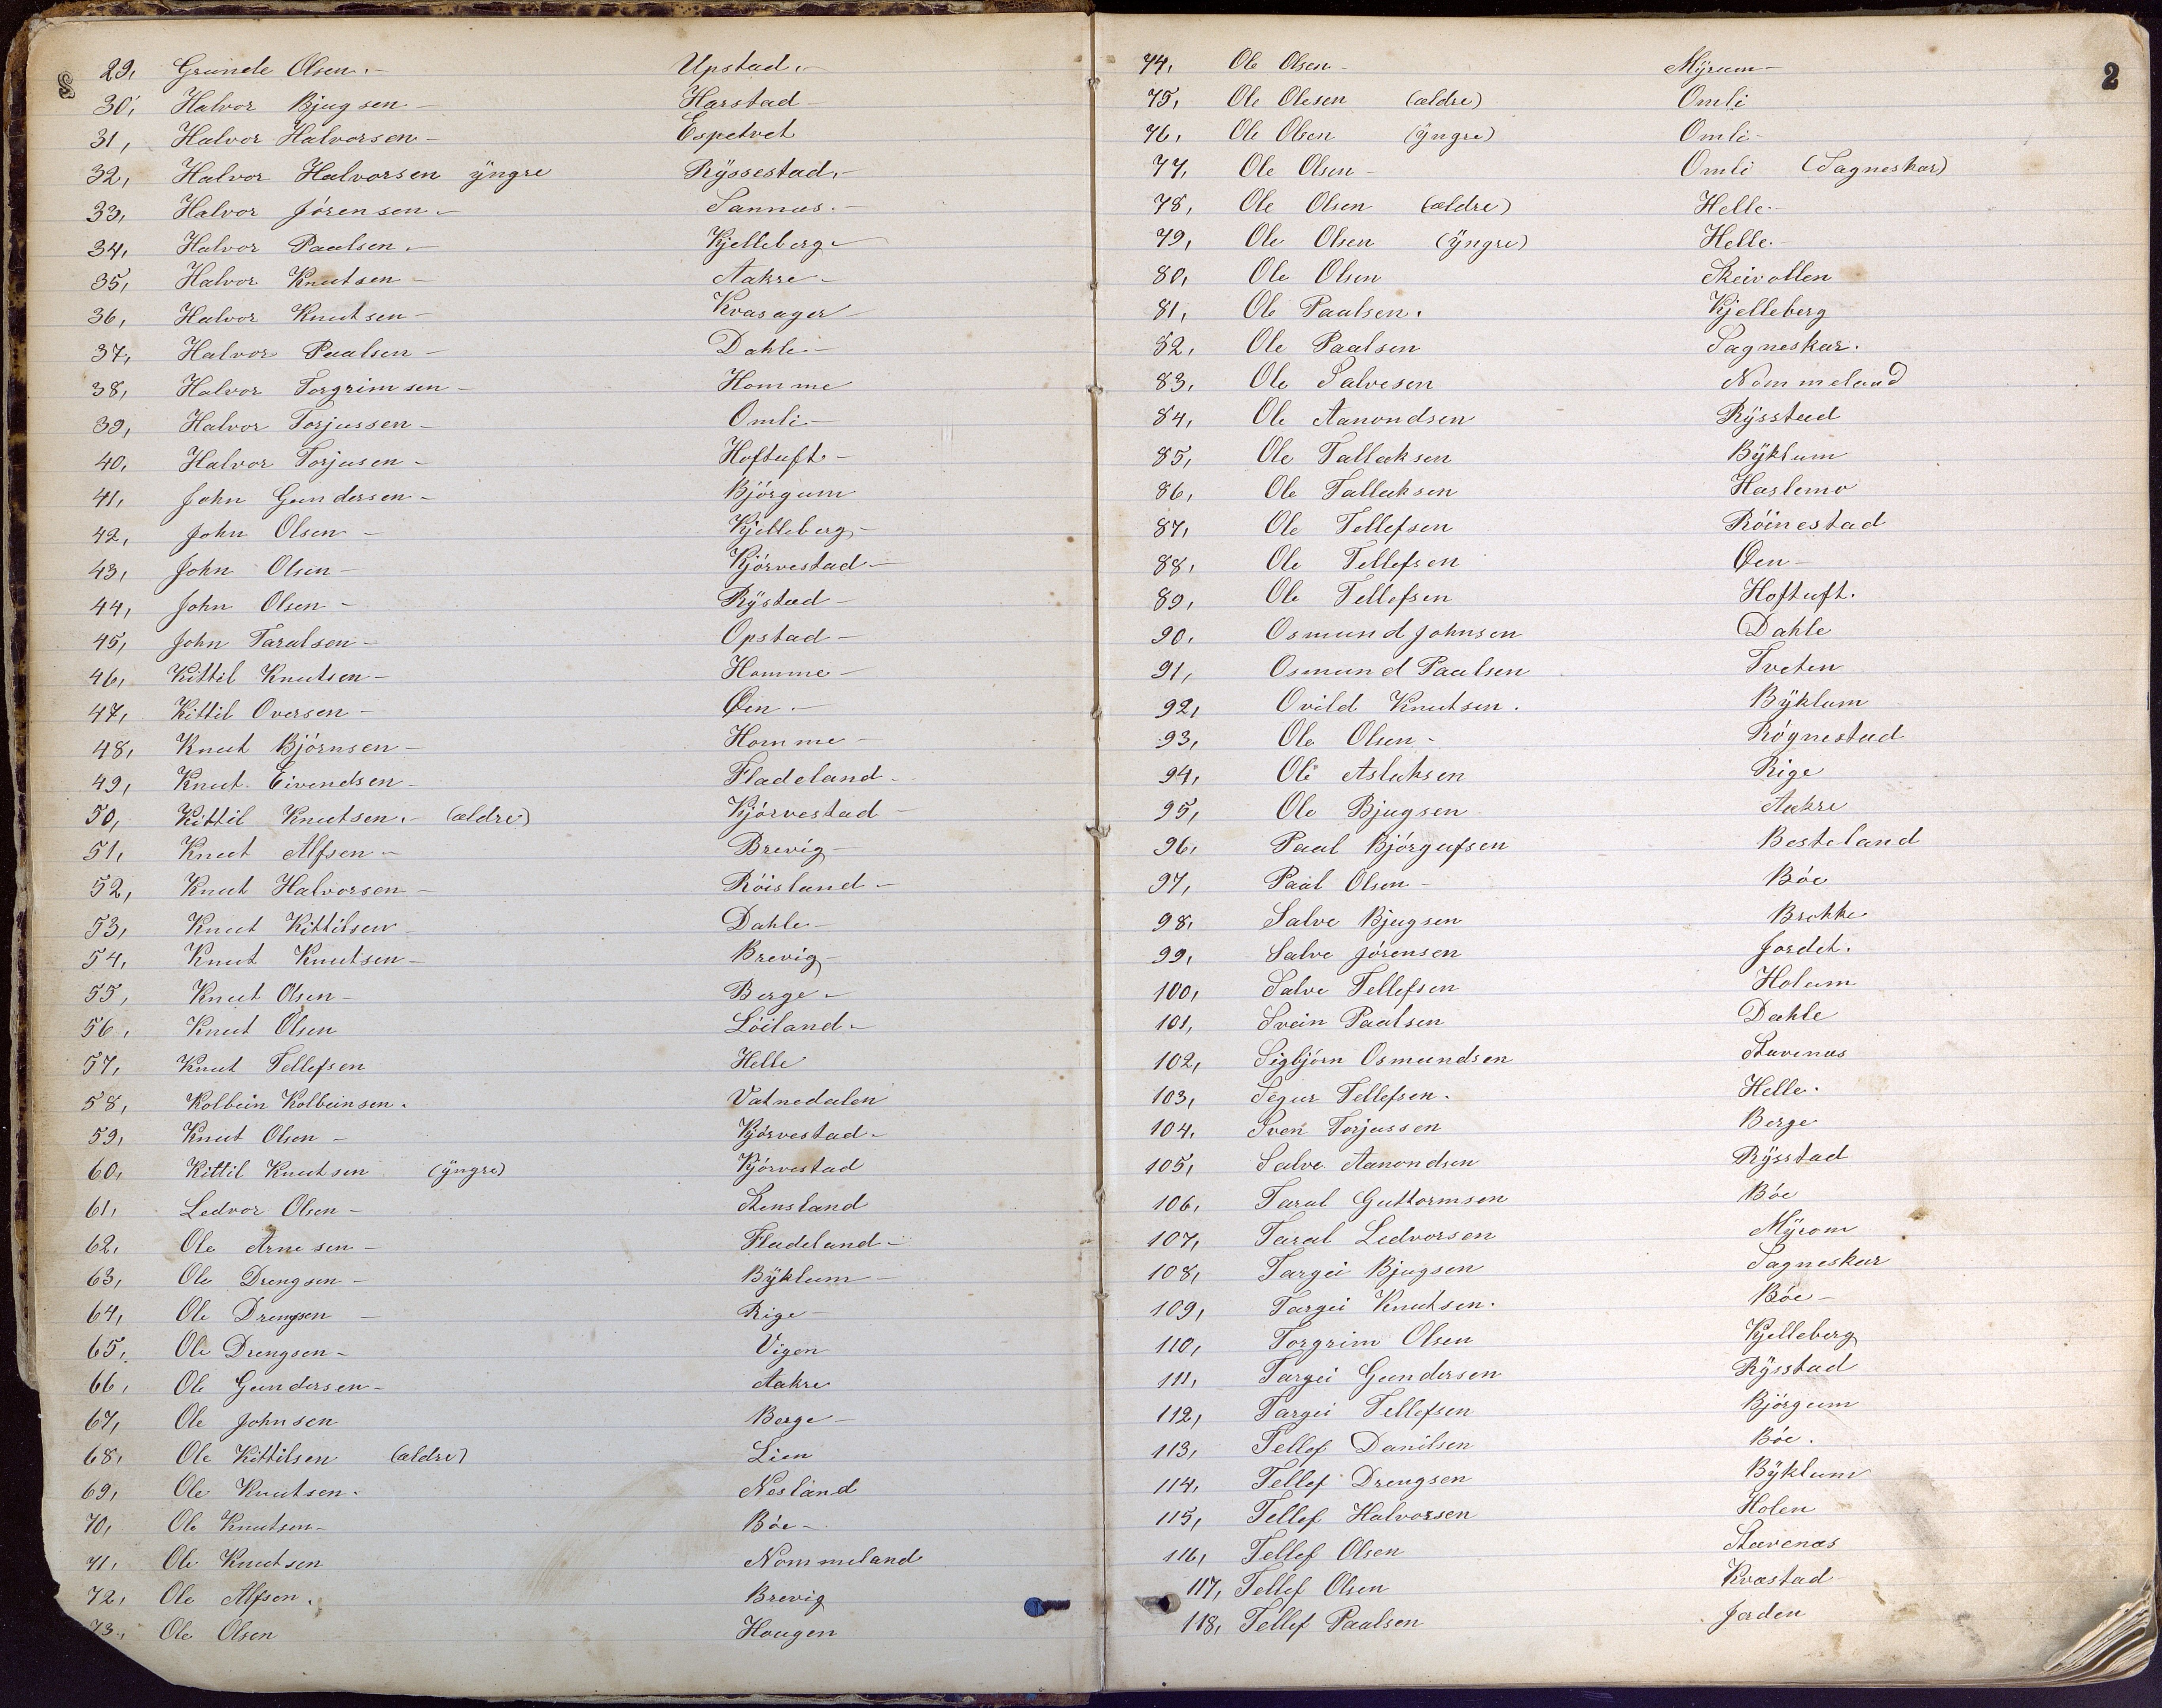 29, Gunde Olsen.- Upstad.-
30, Halvor Bjugsen - Harstad -
31, Halvor Halvorsen - Espetvet
32, Halvor Halvorsen ÿngre Rÿssestad.-
33, Halvor Jörensen.- Sannæs.-
34, Halvor Paulsen.- Kjelleberg -
35, Halvor Knutsen - Aakre -
36, Halvor Knutsen - Kvasager -
37, Halvor Paalsen - Dahle.-
38, Halvor Torgrimsen - Homme
39, Halvor Torjussen - Omli.-
40, Halvor Torjusen - Hoftuft.-
41, John Gundersen - Björgum
42, John Olsen - Kjelleberg -
43, John Olsen - Kjörvestad -
44, John Olsen - Rÿstad -
45, John Taralsen - Opstad -
46, Kittil Knutsen - Homme -
47, Kittil Oversen - Øen.-
48, Knut Björnsen - Homme -
49, Knut Eivendsen - Fladeland -
50, Kittil Knutsen.- (ældre) Kjörvestad -
51, Knut Alfsen - Brevig -
52, Knut Halvorsen - Röisland -
53, Knut Kittilsen Dahle -
54, Knut Knutsen - Brevig -
55, Knut Olsen - Berge -
56, Knut Olsen Löiland -
57, Knut Tellefsen Helle
58, Kolbein Kolbeinsen. Vatnedalen
59, Knut Olsen - Kjörvestad -
60, Kittil Knutsen (ÿngre) Kjörvestad
61, Ledvor Olsen - Stensland
62, Ole Arnesen - Fladeland -
63, Ole Drengsen - Bÿklum -
64, Ole Drengsen - Rige -
65, Ole Drengsen - Vigen
66, Ole Gundersen - Aakre
67, Ole Johnsen Berge -
68, Ole Kittilsen (ældre) Lien
69, Ole Knutsen. Nesland
70, Ole Knutsen - Böe -
71, Ole Knutsen Nommeland
72, Ole Alfsen. Brevig
73, Ole Olsen Hougen
2
74, Ole Olsen - Mÿrum -
75, Ole Olesen (ældre) Omli
76, Ole Olsen (ÿngre) Omli -
77, Ole Olsen - Omli (Sagneskar)
78, Ole Olsen (ældre) Helle.-
79, Ole Olsen (ÿngre) Helle.-
80, Ole Olsen Skeivollen
81, Ole Paalsen. Kjelleberg
82, Ole Paalsen Sagneskar.
83, Ole Salvesen Nommeland
84, Ole Aanondsen Rÿsstad
85, Ole Tallaksen Bÿklum
86, Ole Tallaksen Haslemo
87, Ole Tellefsen Röinestad
88, Ole Tellefsen Øen -
89, Ole Tellefsen Hoftuft.
90, Osmund Johnsen Dahle
91, Osmund Paalsen Tveten
92, Ovild Knutsen. Bÿklum
93, Ole Olsen - Rögnestad
94, Ole Aslaksen Rige
95, Ole Bjugsen Aakre
96, Paal Björgufsen Besteland
97, Paal Olsen - Böe
98, Salve Bjugsen Brokke
99, Salve Jörensen Jordet.
100, Salve Tellefsen Holum
101, Svein Paalsen Dahle
102, Sigbjörn Osmundsen Stavenæs
103, Segur Tellefsen. Helle.
104, Sven Torjussen Berge
105, Salve Aanondsen Rÿsstad
106, Taral Guttormsen Böe
107, Taral Ledvorsen Mÿrom
108, Targei Bjugsen Sagneskar
109, Targei Knutsen. Böe -
110, Torgrim Olsen Kjelleberg
111, Targei Gundersen Rÿsstad
112, Targei Tellefsen Björgum
113, Tellef Danilsen Böe.
114, Tellef Drengsen Bÿklum
115, Tellef Halvorsen Holen
116, Tellef Olsen Stavenæs
117, Tellef Olsen Kvæstad
118, Tellef Paalsen Jorden